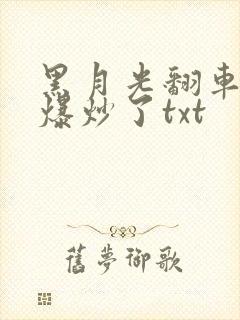 黑月光翻車
爆炒了txt
舊夢御歌